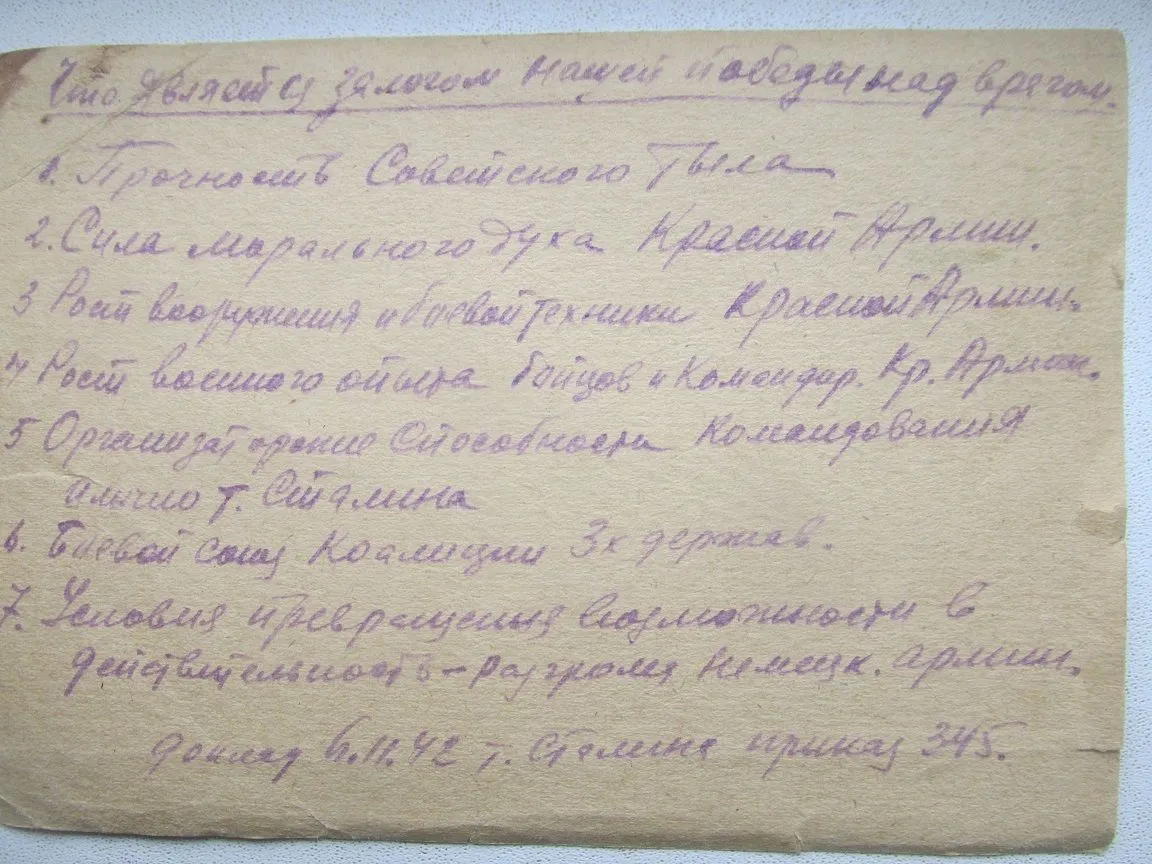 Что является залогом нашей победы над врагом.
1. Прочность Советского тыла
2. Сила морального духа Красной Армии.
3 Рост вооружения и боевой техники Красной Армии.
4 Рост военного опыта бойцов и командир. Кр. Армии.
5 Организаторские способности командования
лично т. Сталина
6. Боевой союз коалиции 3х держав.
7. Условия превращения возможности в
действительность – разгрома немецк. армии.
доклад 6.11.42 т. Сталина приказ 345.